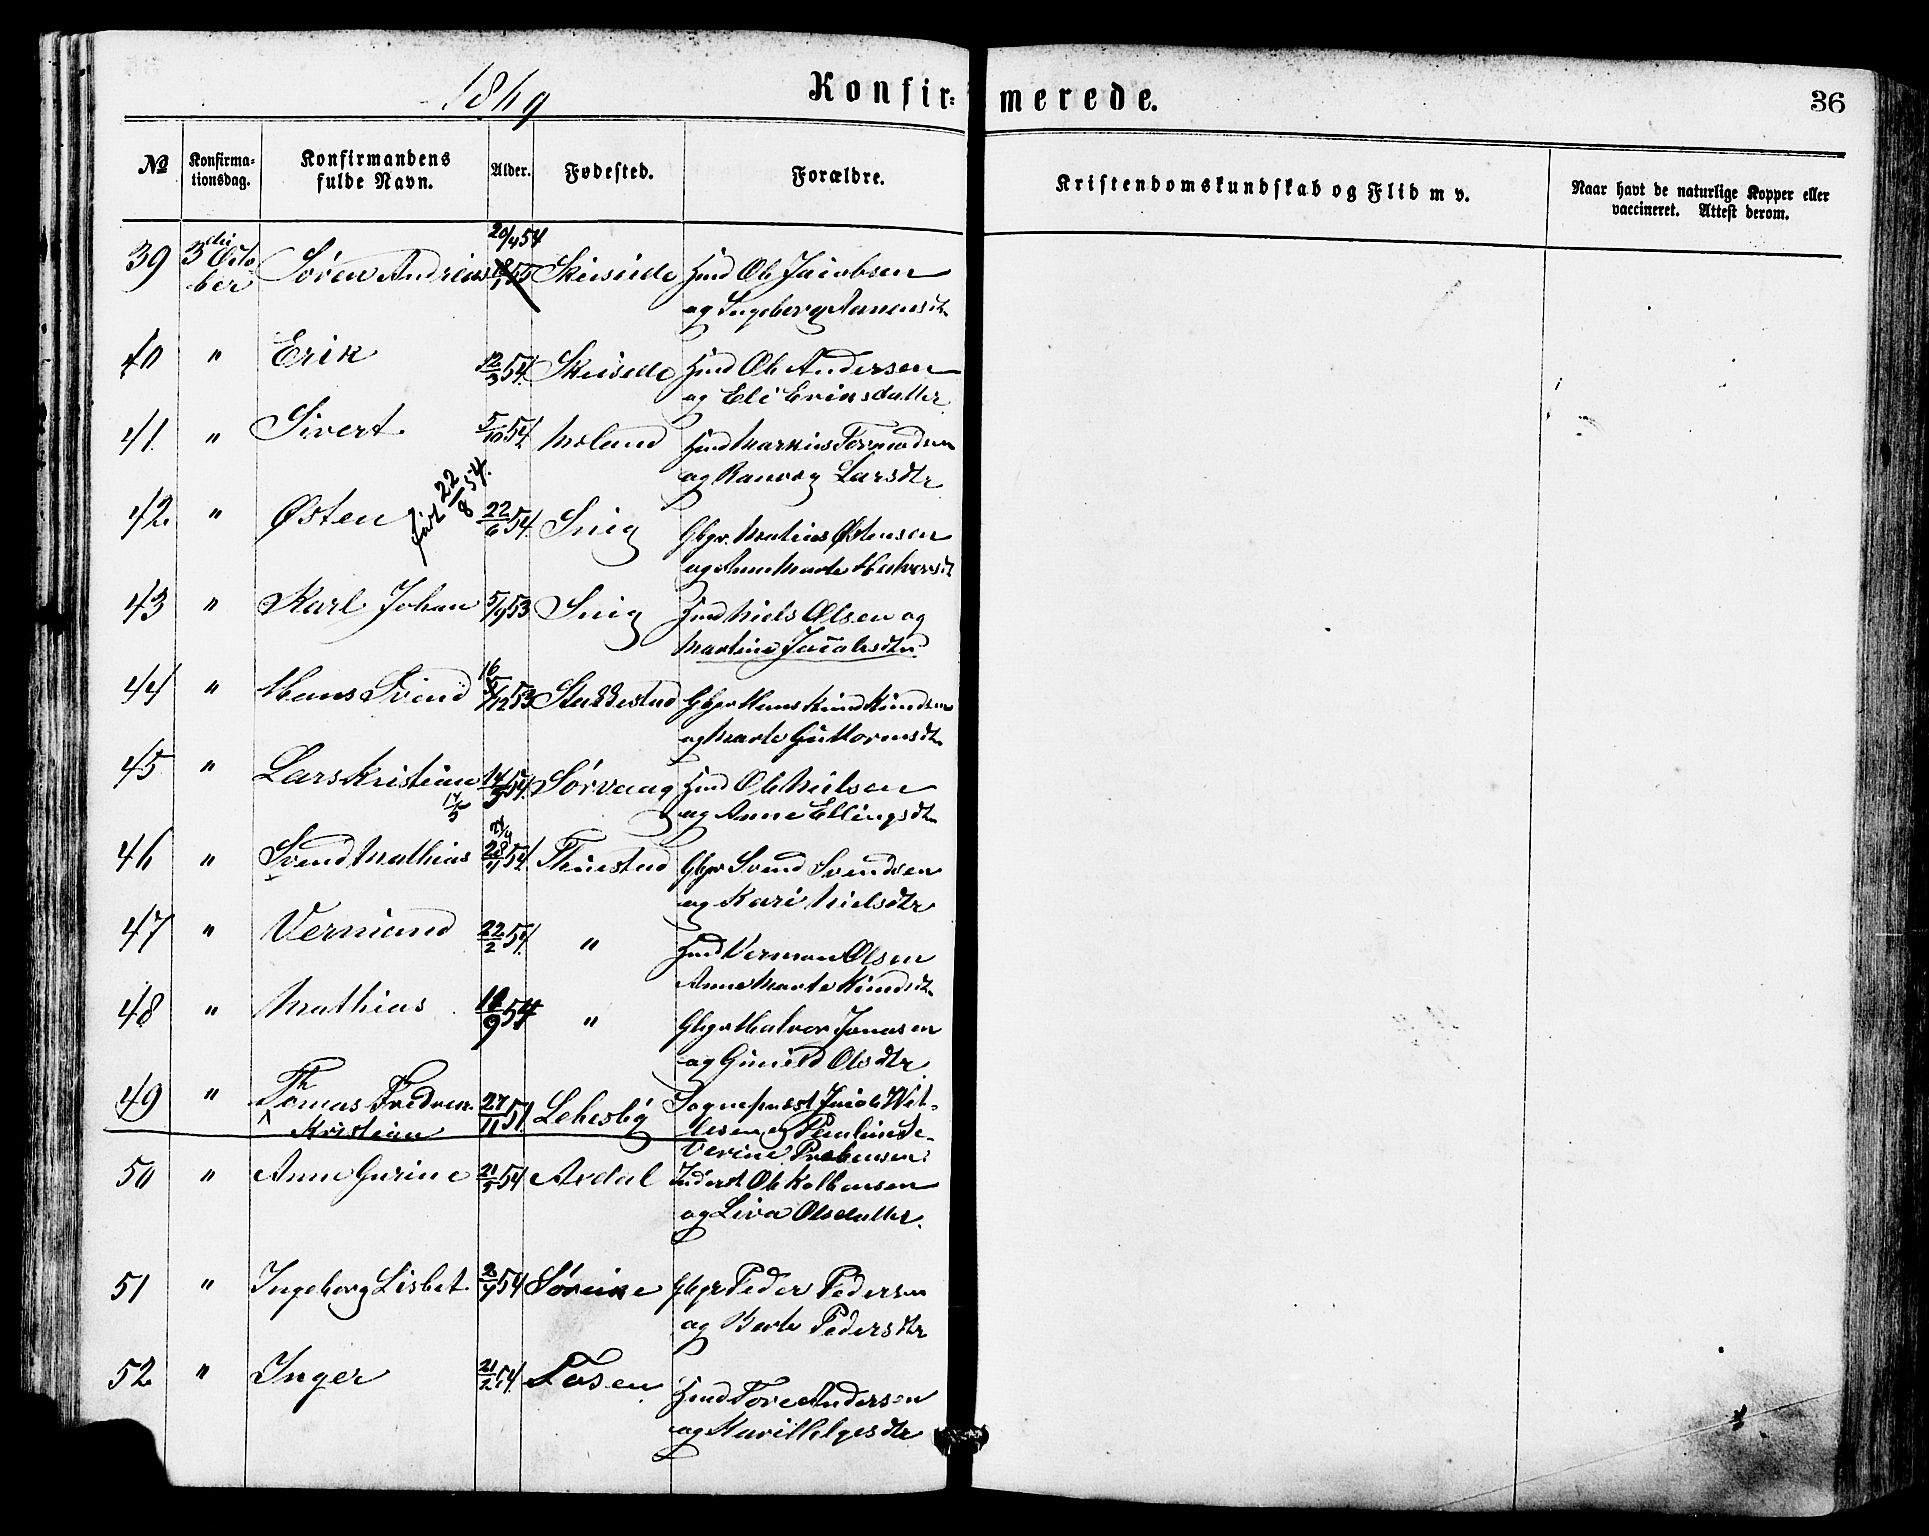 1869 Konfirmerede. 36
No Konfirmationsdag. Konfirmandens fulde Navn. Alder. Fødested. Forældre. Kristendomskundskab og Flid m v. Naar havt de naturlige Kopper eller vaccineret. Attest derom.
20/4 54
39 3die October Søren Andreas Skeisede Hmd Ole Jacobsen
og Ingeborg Aanensdtr
40 " Erik 12/3 54. Skeisede Hmd Ole Andersen
og Eli Eriksdatter
41. " Sivert 5/10 54 Moland Hmd Markus Tormodsen
og Ranveg Larsdtr
42. " Østen født 22/8 54. 22/6 54. Snig Gbgr. Matias Østensen
og Anne Marte Halvorsdt
43 " Karl Johan 5/9 53 Snig Hmd Niels Olsen og
Martine Jacobsdtr
44 " Hans Svend 16 /12 53 Stusestad Gbgr Hans Knud Knudsen
og Marte Guttormsdtr
45 " Lars Kristian 17/5 14/5 54. Sørvaag Hmd Ole Nielsen
og Anne Ellingsdtr
46 " Svend Mathias 54 Thuestad Gbgr Svend Svendsen
og Kari Nielsdtr
47 " Vermund 22/2 54. " Hmd Verman Olsen
Anne Marte Knudsdtr
48 " Mathias 18/9 54 " Gbgr Halvor Jonasen
og Gunild Olsdtr.
49 " Thomas Fredrik Kristian 27/11 51. Lebesby Sognepræst Jacob Wet-
lesen og Pauline Se-
verine Prebensen
50 " Anne Gurine 21/5 54 Ardal Inderst Ole Kolbensen
og Liva Olsdatter.
51 " Ingeborg Lisbet 2/9 54 Søreine Gbgr Peder Pedersen
og Berte Pedersdtr
52 " Inger 21/2 54. Tosen Hmd Tore Andersen
og Kari Helgesdtr